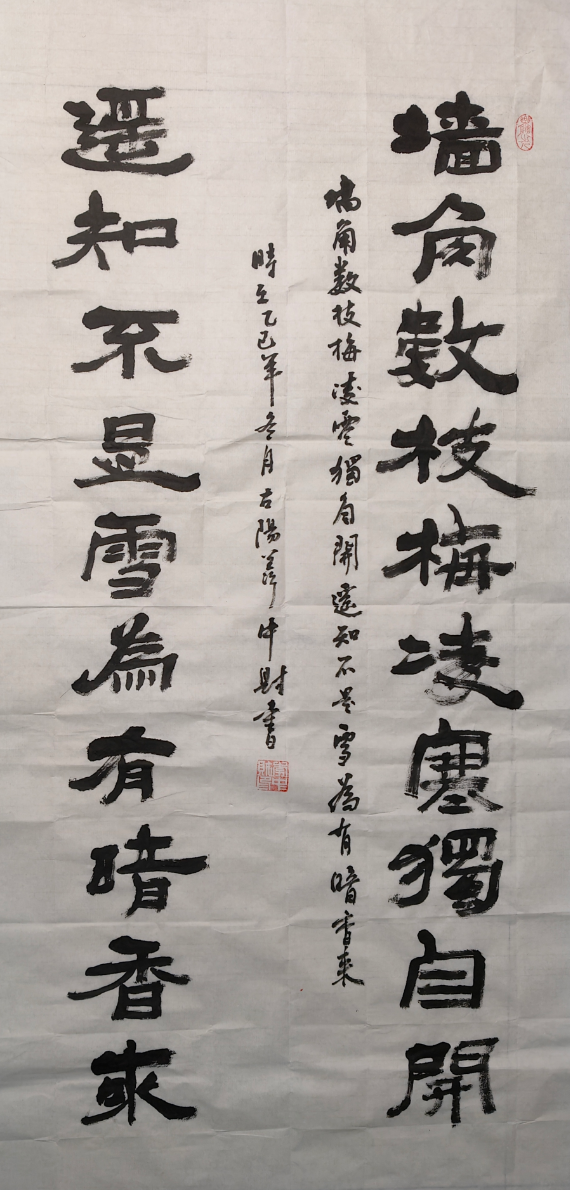 墙角数枝梅凌寒獨自開
墙角数枝梅凌寒獨自開遥知不是雪為有暗香来
時在乙巳年冬月古陽中財書
遥知不是雪為有暗香來